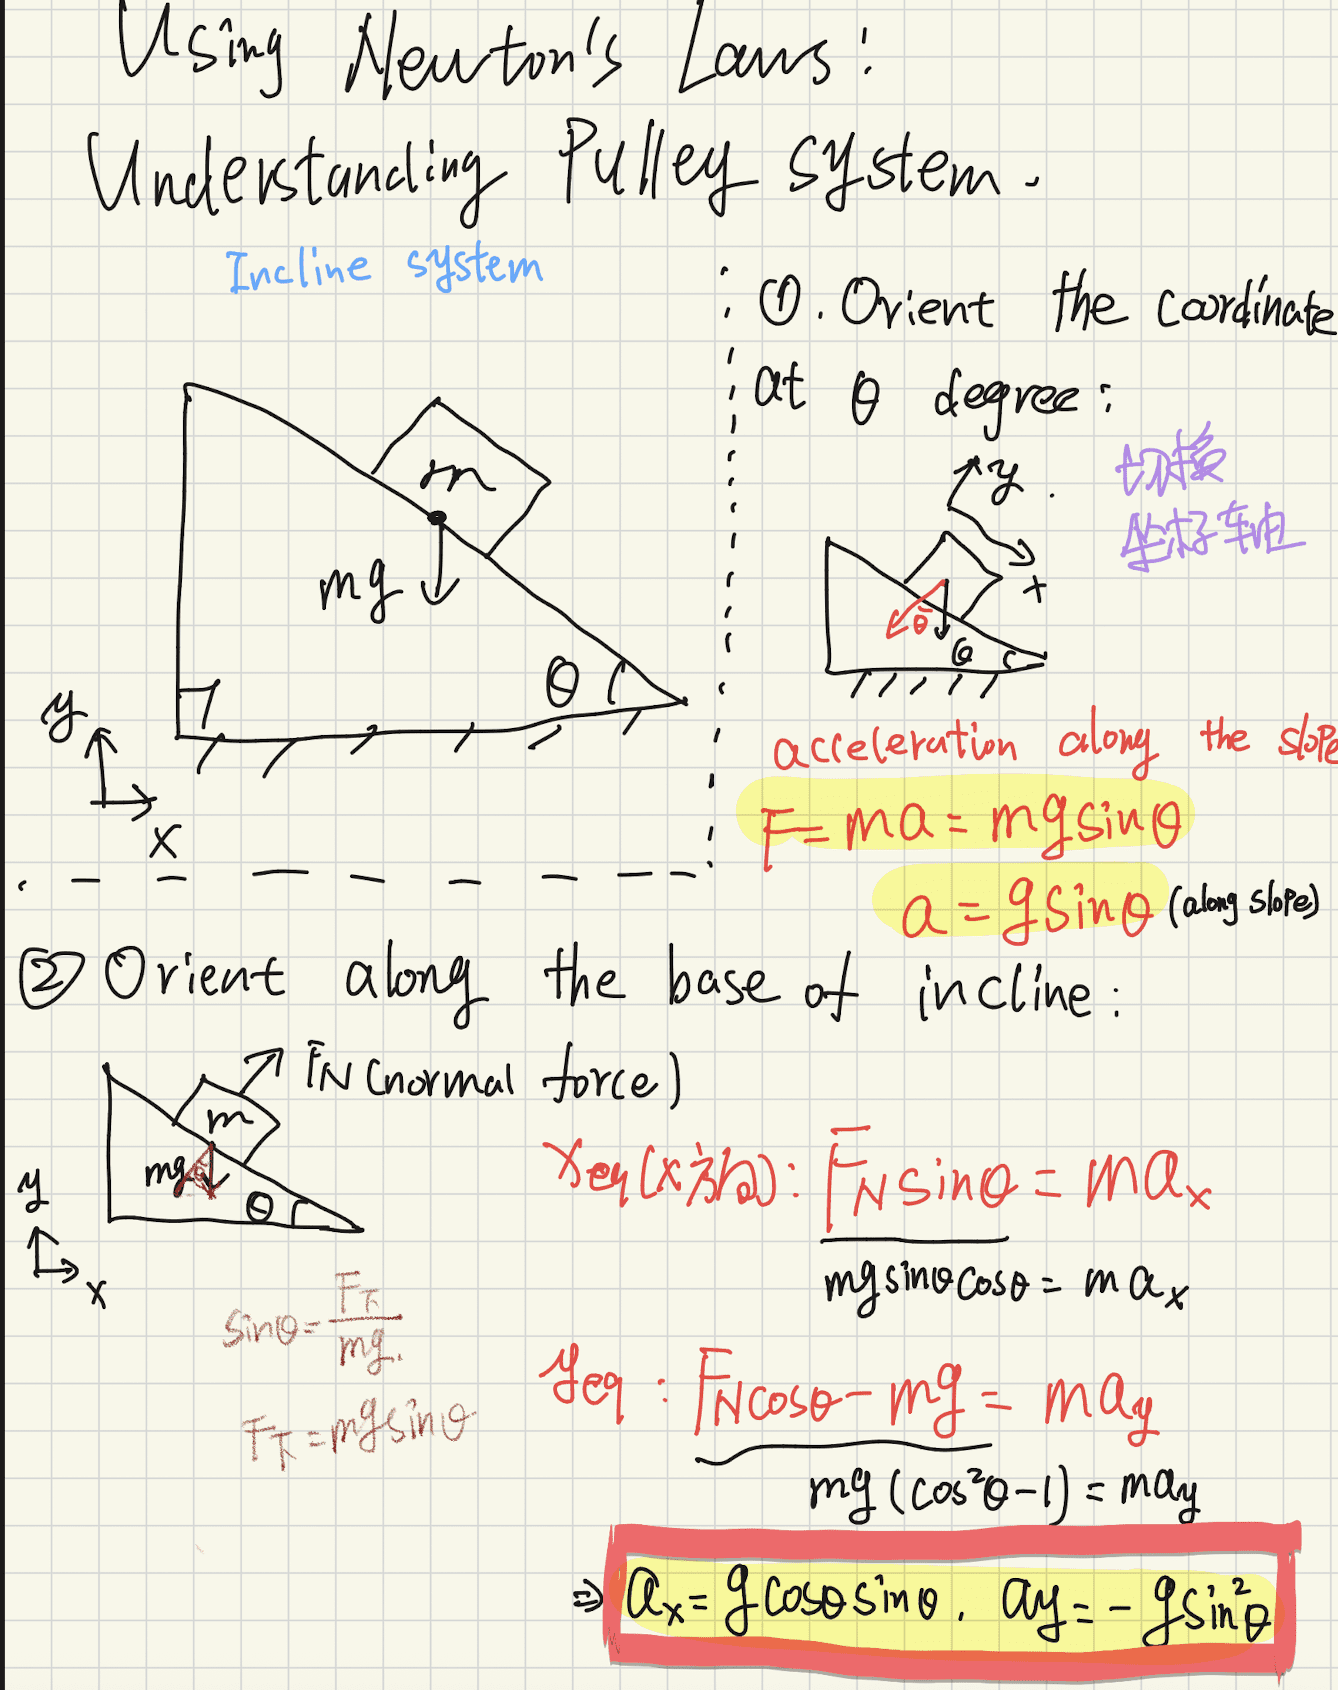 Using Newton's Laws:
Understanding Pulley system.
Incline system
m
mg
θ
y
x
①. Orient the coordinate
at θ degree:
切换
坐标轴
y.
x
θ
θ
acceleration along the slope
F = ma = mg sinθ
a = g sinθ (along slope)
② Orient along the base of incline:
FN (normal force)
m
mg
θ
θ
y
x
sinθ = F下/mg.
F下 = mg sinθ
xeq (x方向): FN sinθ = max
mg sinθ cosθ = max
yeq: FN cosθ - mg = may
mg (cos²θ - 1) = may
⇒ ax = g cosθ sinθ. ay = - g sin²θ